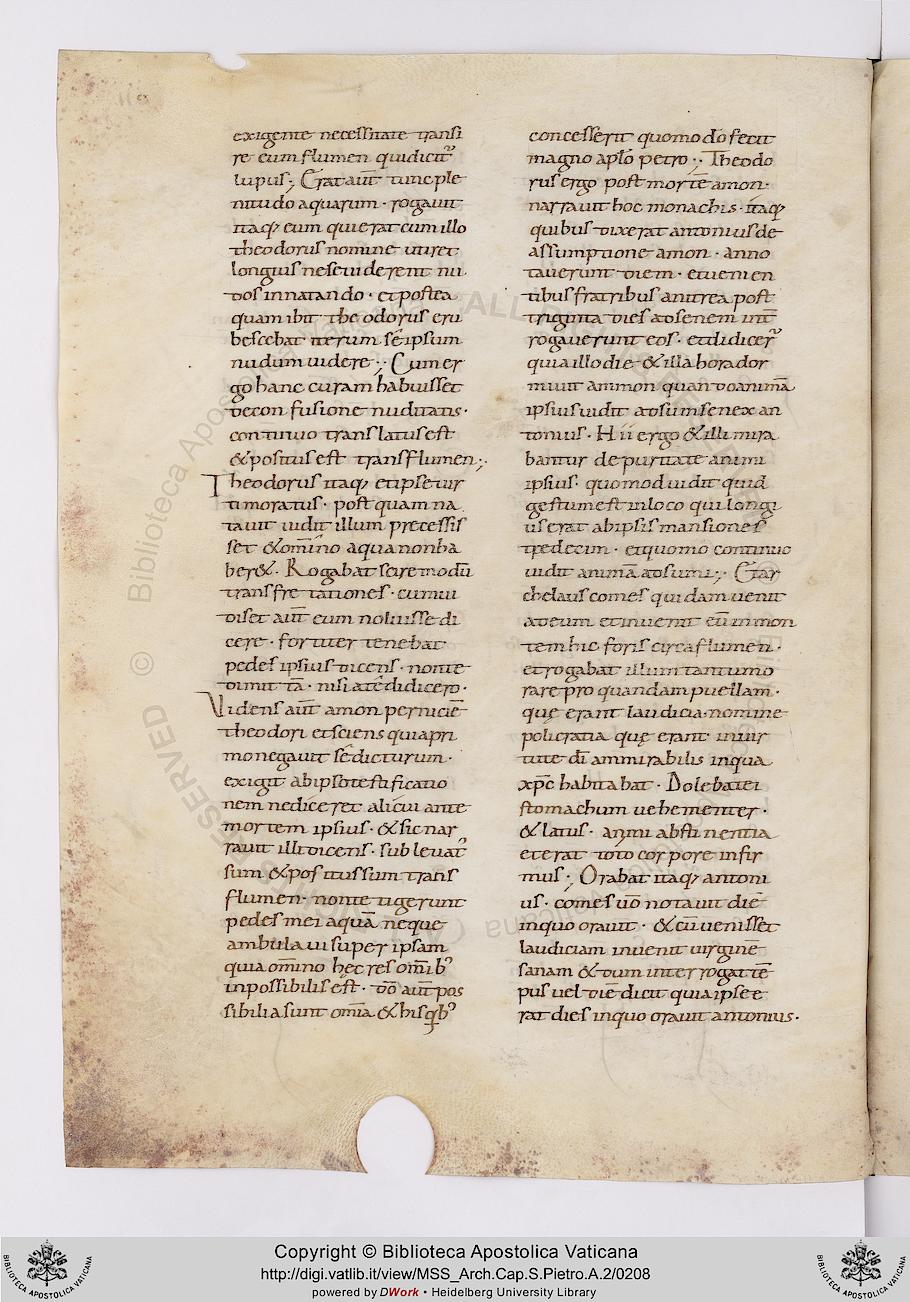 exigente necessitate transi
re eum flumen qui dicit᷑
lupus; Erat aut̅ tunc ple
nitudo aquarum · rogauit
itaq; eum qui erat cum illo
theodorus nomine ut iret
longius ne se uiderent nu
dos in natando · et postea
quam ibit theodorus eru
bescebat iterum se̅ ipsum
nudum uidere; Cum er
go hanc curam habuisset
de confusione nuditatis ·
continuo translatus est
& positus est trans flumen;
Theodorus itaq; et ipse uir
timoratus · post quam na
tauit uidit illum precessis
set & om̅ino aqua non ha
ber& · Rogabat scire modu̅
transfretationes · cum ui
diset aut̅ eum noluisse di
cere · fortiter tenebat
pedes ipsius dicens · non te
dimitta̅ · nisi a te didicero ·
Videns aut̅ amon pernicie̅
theodori et sciens quia pri
mo negauit se̅ dicturum ·
exigit ab ipso testificatio
nem ne diceret alicui ante
mortem ipsius · & sic nar
rauit illi dicens · subleuat᷑
sum & positus sum trans
flumen · non tetigerunt
pedes mei aqua̅ neque
ambulaui super ipsam
quia om̅ino hec res om̅ib;
inpossibilis est · do̅ aut̅ pos
sibilia sunt om̅ia & his qb;
concesserit quomodo fecit
magno aplo̅ petro; Theodo
rus ergo post morte̅ amon ·
narrauit hoc monachis · itaq;
quibus dixerat antonius de
assumptione amon · anno
tauerunt diem · et uenien
tibus fratribus anitrea post
triginta dies ad senem int̅
rogauerunt eos · et didicer᷑
quia illo die & illa hora dor
miuit ammon quando anima̅
ipsius uidit adsum senex an
tonius · Hii ergo & illi mira
bantur de puritate animi
ipsius · quomod uidit quid
gestum est in loco qui longi
us erat ab ipsis mansiones
tredecim · et quomo continuo
uidit anima̅ adsumi; Et ar
chelaus comes quidam uenit
ad eum et inuenit eu̅ in mon
tem hic foris circa flumen ·
et rogabat illum tantum o
rare pro quandam puellam ·
quę erant laudicia · nomine
policratia quę erant in uir
tute di̅ ammirabilis in qua
xp̅c habitabat · Dolebat ei
stomachum uehementer ·
& latus · animi abstinentia
et erat toto corpore infir
mus; Orabat itaq; antoni
us · comes uo̅ notauit die̅
in quo orauit · & cu̅ uenisset
laudiciam inuenit uirgine̅
sanam & dum interrogat te̅
pus uel die̅ dicit quia ipse e
rat dies in quo orauit antonius ·
© Biblioteca Apostolica Vaticana
ALL RIGHTS RESERVED
Copyright © Biblioteca Apostolica Vaticana
http://digi.vatlib.it/view/MSS_Arch.Cap.S.Pietro.A.2/0208
powered by DWork • Heidelberg University Library
BIBLIOTECA APOSTOLICA VATICANA
BIBLIOTECA APOSTOLICA VATICANA